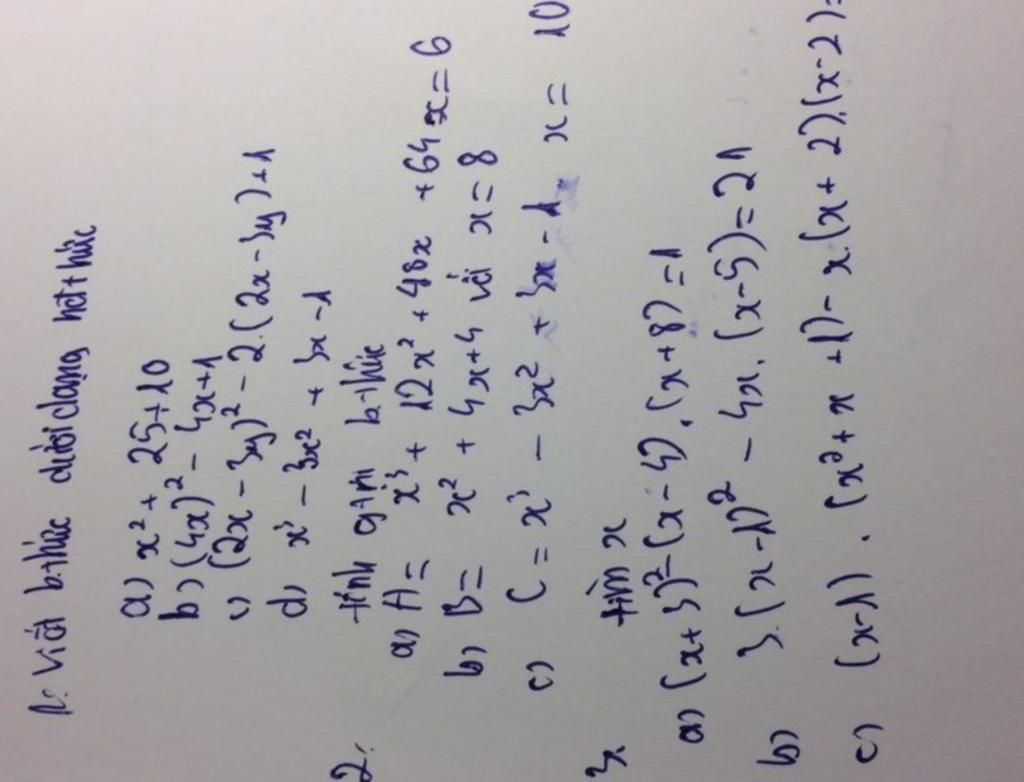 1. Viết b.thức dưới dạng hđt+hức
a) x² + 25+10
b) (4x)² - 4x+1
c) (2x - 3y)² - 2.(2x-3y)+1
d) x³ - 3x² + 3x -1
2. tính gtrị b.thức
a) A = x³ + 12x² + 48x + 64 x = 6
b) B = x² + 4x+4 với x = 8
c) C = x³ - 3x² + 3x - 1 x = 10
3. tìm x
a) (x+3)² - (x-4).(x+8)=1
b) 3.(x-1)² - 4x.(x-5)=21
c) (x-1).(x²+x+1)-x.(x+2).(x-2)=